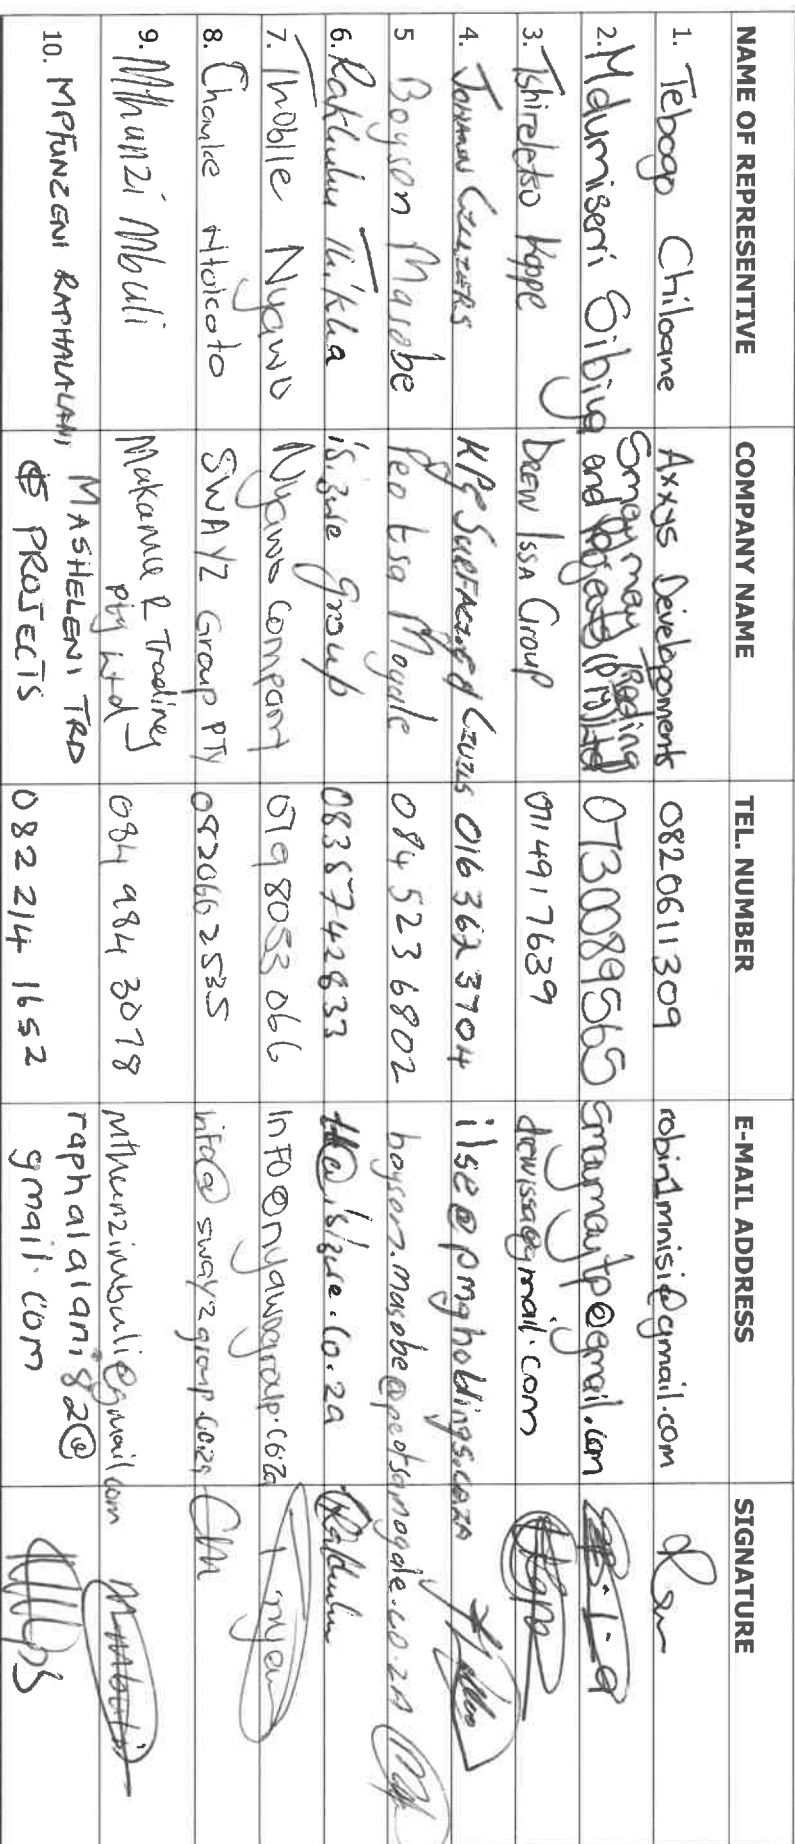 NAME OF REPRESENTIVE COMPANY NAME TEL. NUMBER E-MAIL ADDRESS SIGNATURE
1. Tebogo Chiloane Axxys Developments 0820611309 robin1mnisi@gmail.com
2. Mdumiseni Sibiya Smaymay Trading and Projects (PTY) Ltd 0730089565 smaymaytp@gmail.com
3. Tshireletso Koppe Drew Issa Group 0714917639 drewissa@gmail.com
4. 016 362 3704 ilse@pmgholdings.co.za
5 Boyson Masobe Peotsa Mogale 084 523 6802 boyson.masobe@peotsamogale.co.za
6. isizwe Group 0838742833
7. Thobile Nyawo Nyawo Company 079 8053 066 info@nyawogroup.co.za
8. SWAYZ Group PTY 0820662535 info@swayzgroup.co.za
9. Mthunzi Mbuli Makamu R Trading Pty Ltd 084 984 3078 mthunzimbuli@gmail.com
10. MPFUNZENI RAPHALALANI MASHELENI TRD & PROJECTS 082 214 1652 raphalalani82@gmail.com